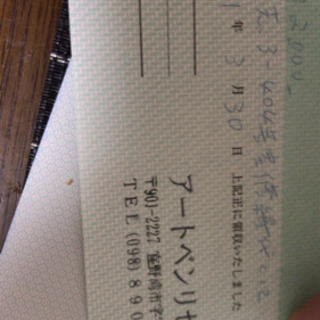 2,000-
3-404号室修繕代として
1年 3月 30日 上記正に領収いたしました
アートペンリ
〒901-2227 宜野湾市字
TEL (098) 890